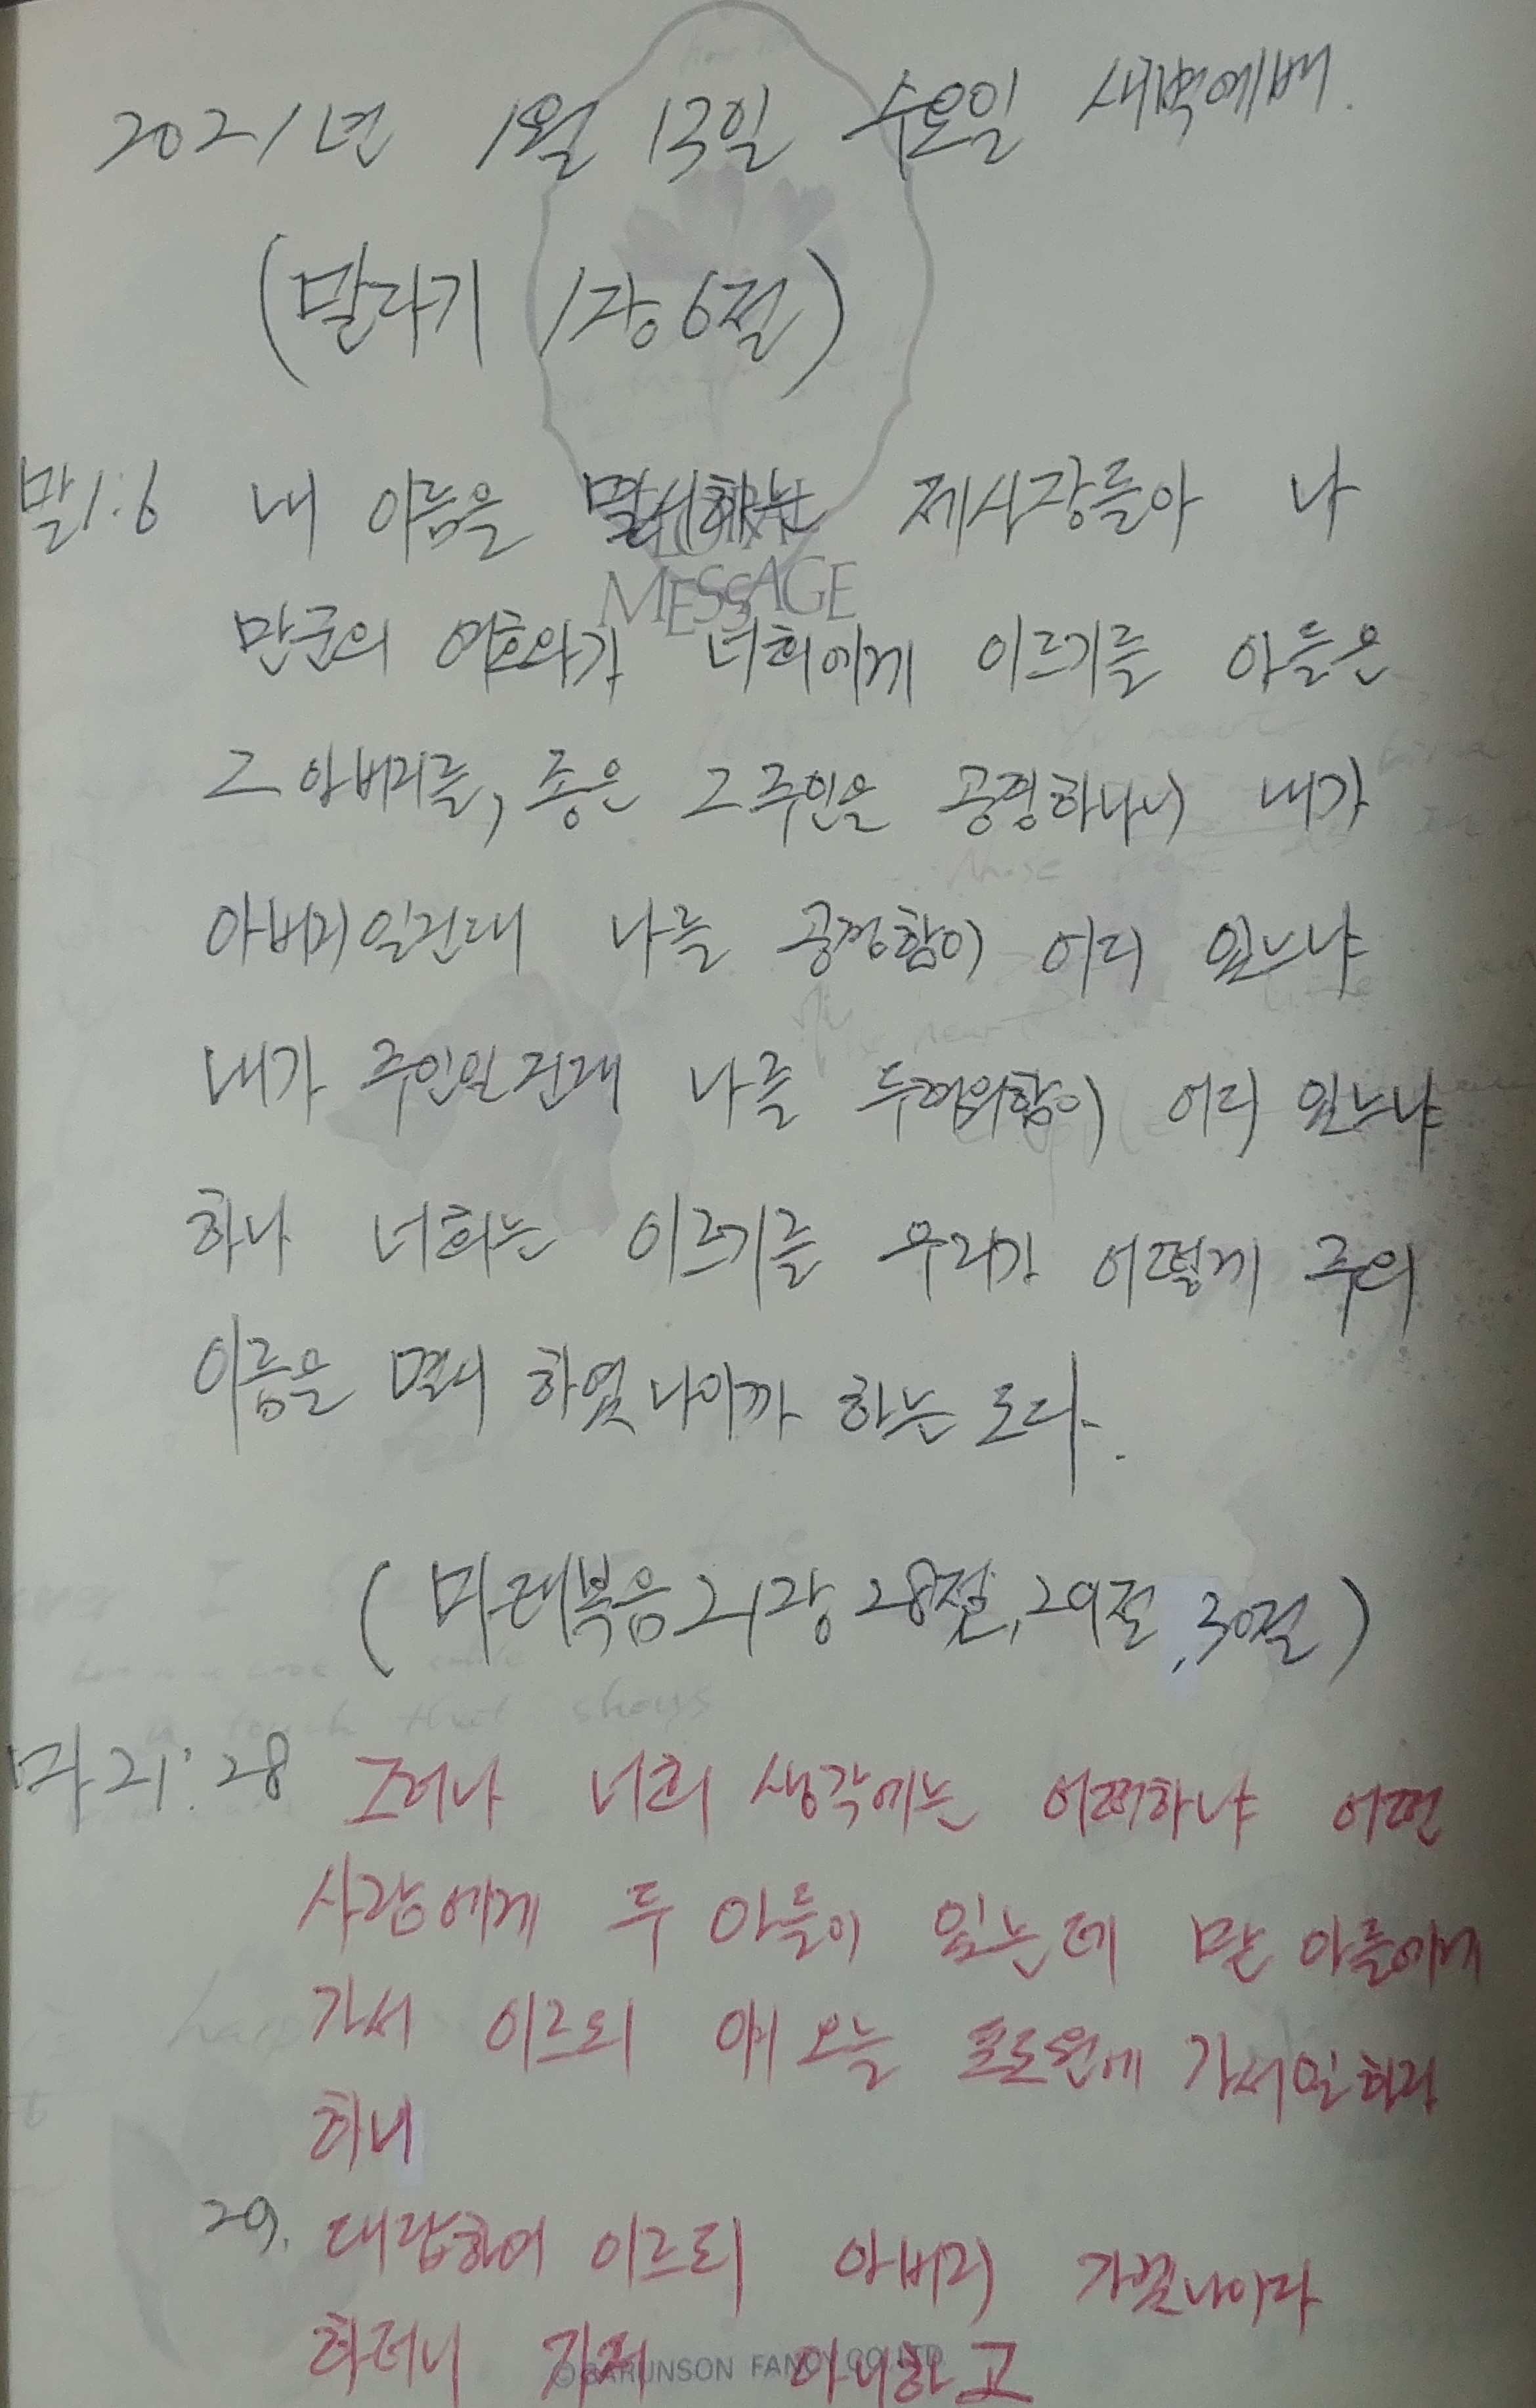 2021년 1월 13일 수요일 새벽예배.
(말라기 1장 6절)
말1:6 내 이름을 멸시하는 제사장들아 나
MESSAGE
만군의 여호와가 너희에게 이르기를 아들은
그 아버지를, 종은 그 주인을 공경하나니 내가
아버지일진대 나를 공경함이 어디 있느냐
내가 주인일진대 나를 두려워함이 어디 있느냐
하나 너희는 이르기를 우리가 어떻게 주의
이름을 멸시 하였나이까 하는 도다.
(마태복음 21장 28절, 29절, 30절)
마 21:28 그러나 너희 생각에는 어떠하냐 어떤
사람에게 두 아들이 있는데 맏 아들에게
가서 이르되 얘 오늘 포도원에 가서 일하라
하니
29. 대답하여 이르되 아버지 가겠나이다
하더니 가지 아니하고
©BARUNSON FANCY CO., LTD.